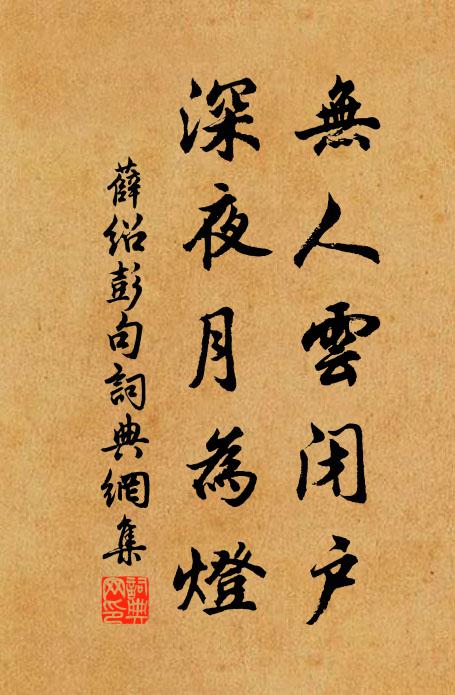 無人雲闭户
深夜月為燈
薛绍彭句詞典網集
詞典網印